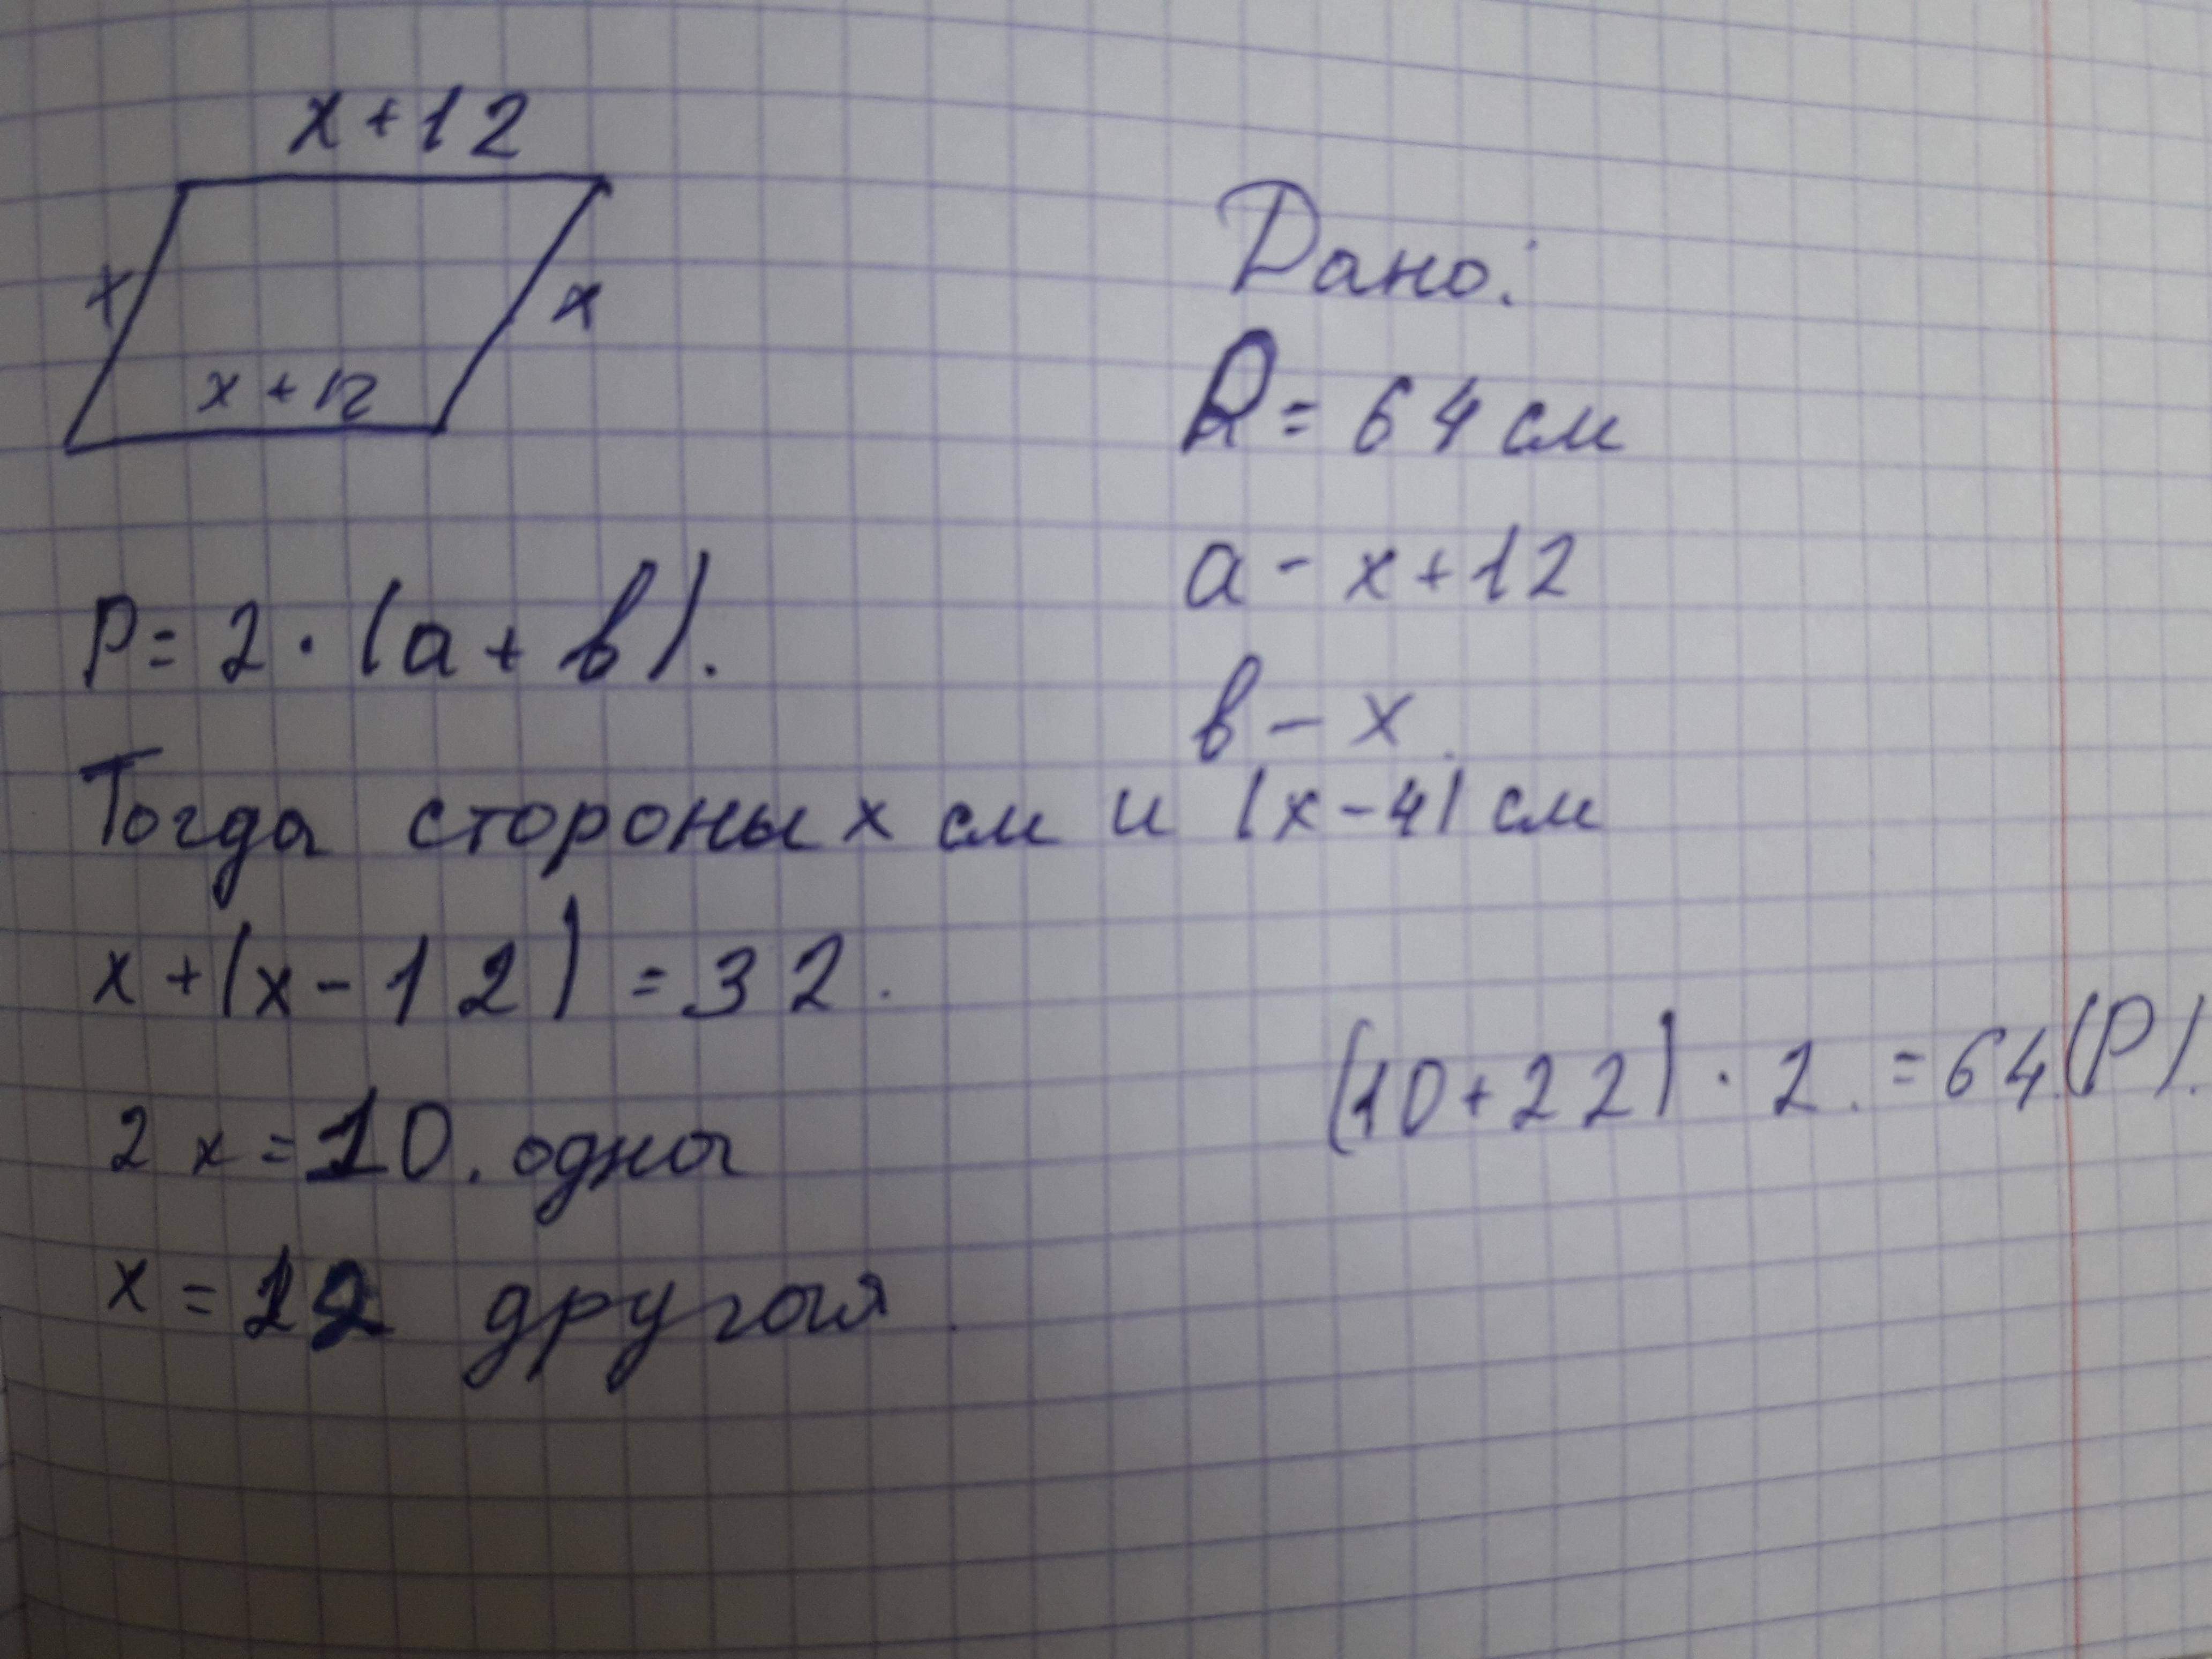 x+12
x
x
x+12
Дано:
P= 64 см
a - x+12
в - x.
P= 2 · (a + в).
Тогда стороны x см и (x-4) см
x +(x-12) = 32.
2 x = 10. одна
x = 12 другая.
(10+22) · 2. = 64(P).